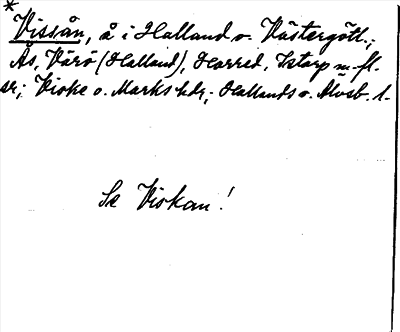 *
Vissån, å i Halland o. Västergötl.;
Ås, Värö (Halland), Horred, Istorp m. fl.
sr; Viske o. Marks hdr; Hallands o. Älvsb. l.
Se Viskan!